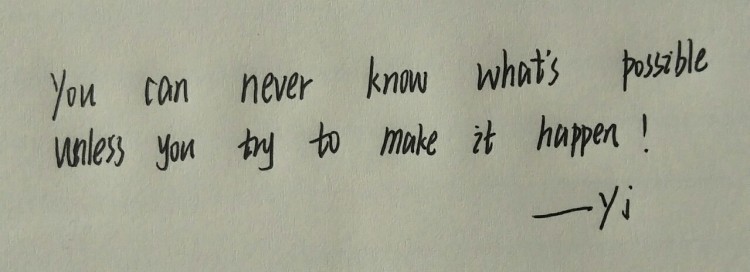 You can never know what's possible
unless you try to make it happen!
—Yi